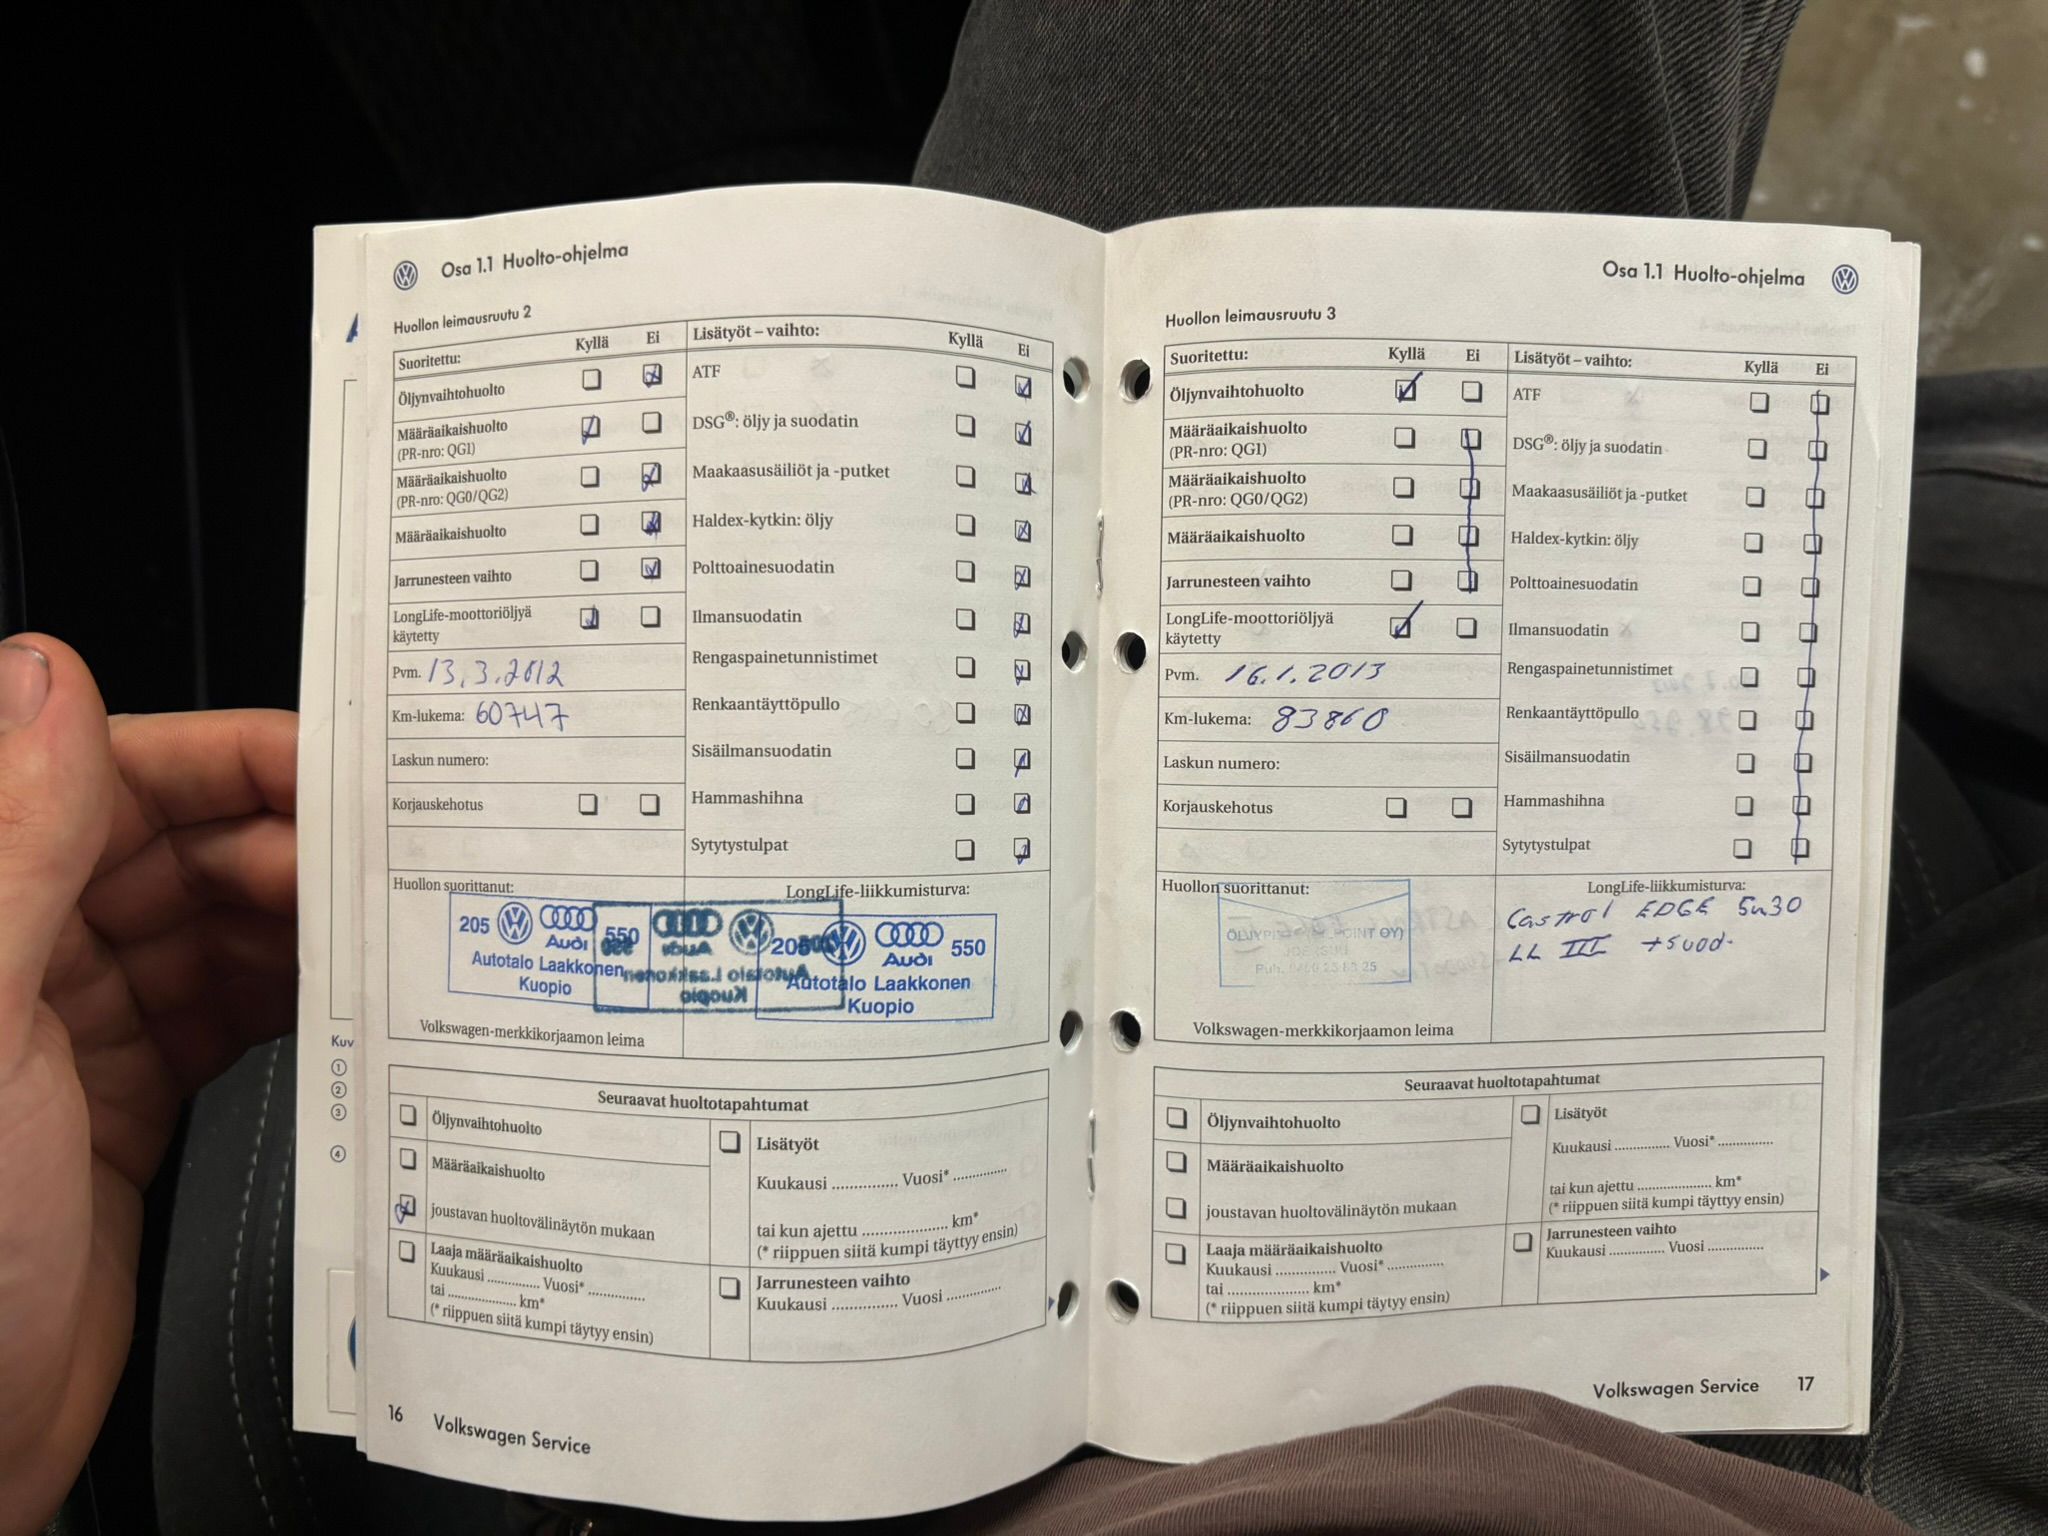 Osa 1.1 Huolto-ohjelma
Huollon leimausruutu 2
Suoritettu: Kyllä Ei
Öljynvaihtohuolto
Määräaikaishuolto
(PR-nro: QG1)
Määräaikaishuolto
(PR-nro: QG0/QG2)
Määräaikaishuolto
Jarrunesteen vaihto
LongLife-moottoriöljyä
käytetty
Pvm. 13.3.2012
Km-lukema: 60747
Laskun numero:
Korjauskehotus
Lisätyöt – vaihto: Kyllä Ei
ATF
DSG®: öljy ja suodatin
Maakaasusäiliöt ja -putket
Haldex-kytkin: öljy
Polttoainesuodatin
Ilmansuodatin
Rengaspainetunnistimet
Renkaantäyttöpullo
Sisäilmansuodatin
Hammashihna
Sytytystulpat
Huollon suorittanut:
205 Audi 550
Autotalo Laakkonen
Kuopio
Volkswagen-merkkikorjaamon leima
LongLife-liikkumisturva:
205 Audi 550
Autotalo Laakkonen
Kuopio
Seuraavat huoltotapahtumat
Öljynvaihtohuolto
Määräaikaishuolto
joustavan huoltovälinäytön mukaan
Laaja määräaikaishuolto
Kuukausi .............. Vuosi* ...............
tai .................. km*
(* riippuen siitä kumpi täytyy ensin)
Lisätyöt
Kuukausi .............. Vuosi* ..............
tai kun ajettu .................. km*
(* riippuen siitä kumpi täyttyy ensin)
Jarrunesteen vaihto
Kuukausi .............. Vuosi ..............
16 Volkswagen Service
Kuv
1
2
3
4
Osa 1.1 Huolto-ohjelma
Huollon leimausruutu 3
Suoritettu: Kyllä Ei
Öljynvaihtohuolto
Määräaikaishuolto
(PR-nro: QG1)
Määräaikaishuolto
(PR-nro: QG0/QG2)
Määräaikaishuolto
Jarrunesteen vaihto
LongLife-moottoriöljyä
käytetty
Pvm. 16.1.2013
Km-lukema: 83860
Laskun numero:
Korjauskehotus
Lisätyöt – vaihto: Kyllä Ei
ATF
DSG®: öljy ja suodatin
Maakaasusäiliöt ja -putket
Haldex-kytkin: öljy
Polttoainesuodatin
Ilmansuodatin
Rengaspainetunnistimet
Renkaantäyttöpullo
Sisäilmansuodatin
Hammashihna
Sytytystulpat
Huollon suorittanut:
Puh.
Volkswagen-merkkikorjaamon leima
LongLife-liikkumisturva:
Castrol EDGE 5w30
LL III +suod.
Seuraavat huoltotapahtumat
Öljynvaihtohuolto
Määräaikaishuolto
joustavan huoltovälinäytön mukaan
Laaja määräaikaishuolto
Kuukausi .............. Vuosi* ..............
tai .................. km*
(* riippuen siitä kumpi täytyy ensin)
Lisätyöt
Kuukausi .............. Vuosi* ..............
tai kun ajettu .................. km*
(* riippuen siitä kumpi täyttyy ensin)
Jarrunesteen vaihto
Kuukausi .............. Vuosi ..............
Volkswagen Service 17